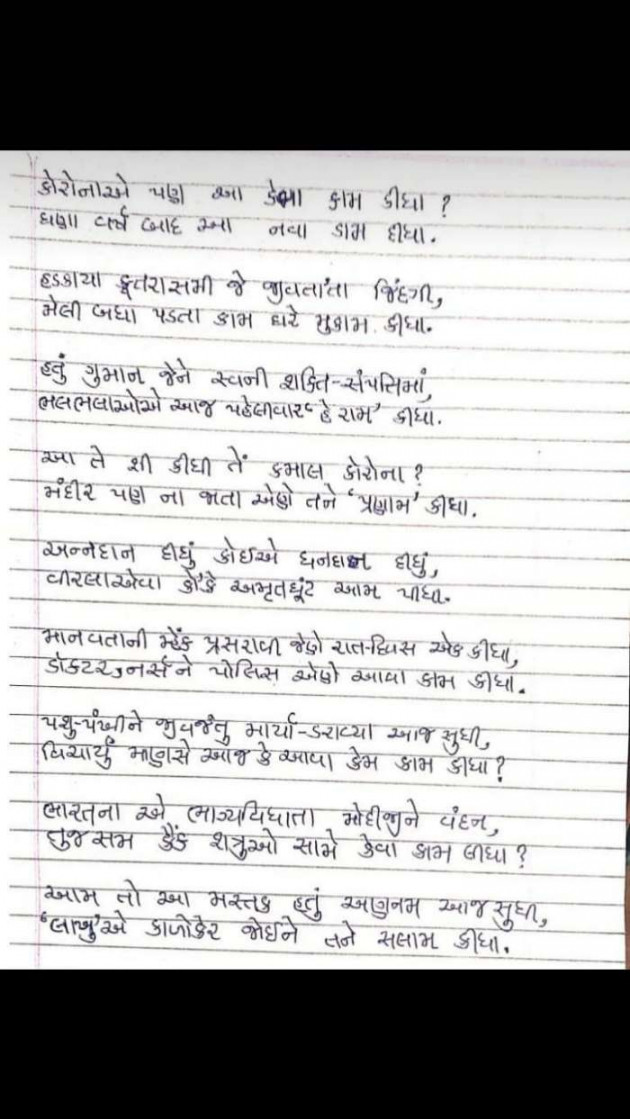 કોરોનાએ પણ આ કેવા કામ કીધા ?
ઘણા વર્ષ બાદ આ નવા કામ દીધા.
હડકાયા કૂતરાસમી જે જીવતા'તા જિંદગી,
મેલી બધા પડતા કામ ઘરે મુકામ કીધા.
હતું ગુમાન જેને સ્વની શક્તિ-સંપત્તિમાં,
ભલભલાઓએ આજ પહેલીવાર 'હે રામ' કીધા.
આ તે શી કીધી તેં કમાલ કોરોના ?
મંદીર પણ ના જાતા એણે તને 'પ્રણામ' કીધા.
અન્નદાન દીધું કોઈએ ધનદાન દીધું,
વીરલાએવા કો'કે અમૃતઘૂંટ આમ પીધા.
માનવતાની મ્હેંક પ્રસરાવી જેણે રાત-દિવસ એક કીધા,
ડોકટર,નર્સ ને પોલિસ એણે આવા કામ કીધા.
પશુ-પંખીને જીવજંતુ માર્યા-ડરાવ્યા આજ સુધી,
વિચાર્યું માણસે આજ કે આવા કેમ કામ કીધા ?
ભારતના એ ભાગ્યવિધાતા મોદીજીને વંદન,
તુજ સમ કૈંક શત્રુઓ સામે કેવા કામ લીધા ?
આમ તો આ મસ્તક હતું અણનમ આજ સુધી,
'લાખુ'એ કાળોકેર જોઈને તને સલામ કીધા.